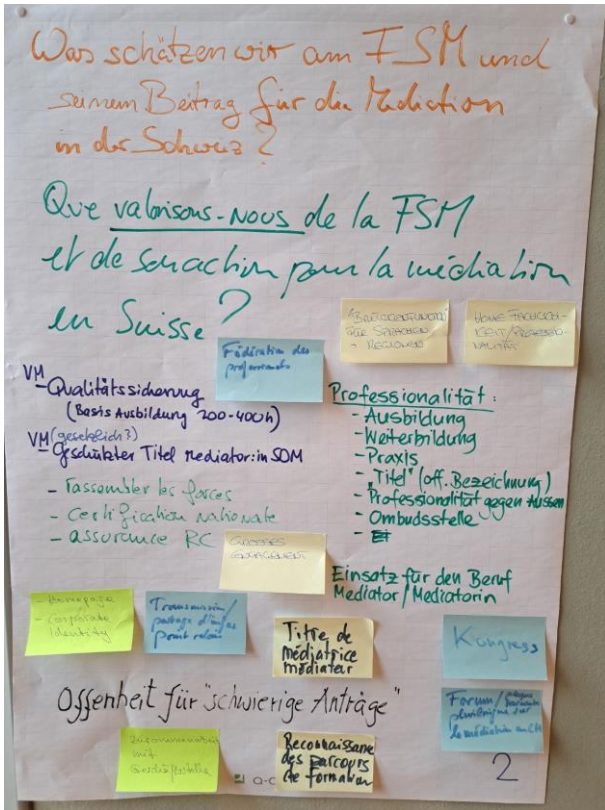 Was schätzen wir am FSM und
seinem Beitrag für die Mediation
in der Schweiz?
Que valorisons-nous de la FSM
et de son action pour la médiation
en Suisse?
Fédération des
"BRÜCKENFUNKTION"
FÜR SPRACHEN
+ REGIONEN
HOHE FACHLICH-
KEIT/PROFESSIO-
NALITÄT
VM
- Qualitätssicherung
(Basis Ausbildung 200-400h)
VM (gesetzlich?)
- Geschützter Titel Mediator:in SDM
- rassembler les forces
- certification nationale
- assurance RC
Professionalität:
- Ausbildung
- Weiterbildung
- Praxis
- "Titel" (off. Bezeichnung)
- Professionalität gegen Aussen
- Ombudsstelle
-
GROSSES
ENGAGEMENT
Einsatz für den Beruf
Mediator/Mediatorin
- Homepage
- Corporate
Identity
Transmission/
partage d'infos
point relais
Titre de
médiatrice
médiateur
Kongress
Offenheit für "schwierige Anträge"
Forum/
la médiation en CH
Zusammenarbeit
mit
Geschäftsstelle
Reconnaissance
des parcours
de formation
2